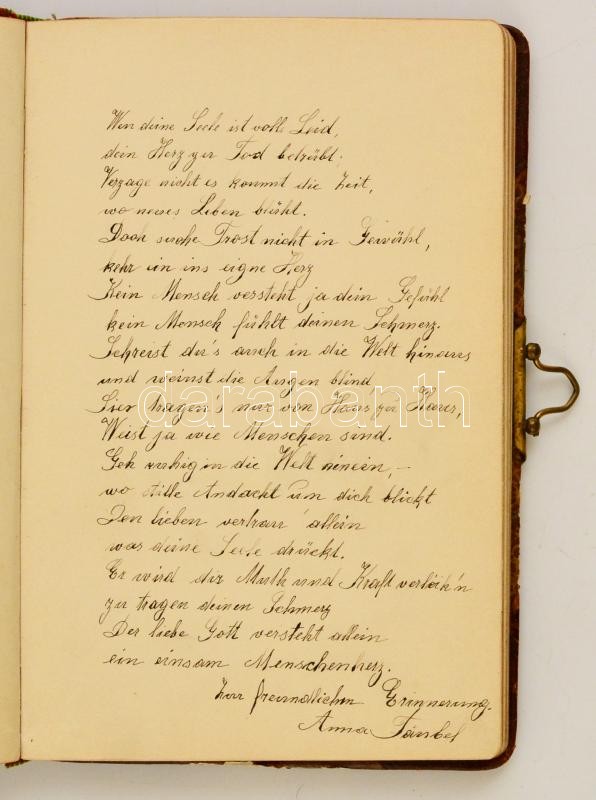 Wen deine Seele ist voll Leid,
dein Herz zu Tod betrübt.
Verzage nicht es kommt die Zeit,
wo neues Leben blüht.
Doch suche Trost nicht in Gewühl,
kehr in ins eigne Herz
Kein Mensch versteht ja dein Gefühl
kein Mensch fühlt deinen Schmerz.
Schreist du's auch in die Welt hinaus
und weinst die Augen blind
Sier tragen's nur von Haus zu Haus,
Weist ja wie Menschen sind.
Geh ruhig in die Welt hinein, –
wo stille Andacht um dich blickt
Den lieben vertrau' allein
was deine Seele drückt.
Er wird dir Muth und Kraft verleih'n
zu tragen deinen Schmerz
Der liebe Gott versteht allein
ein einsam Menschenherz.
Zur freundlichen Erinnerung.
Anna
darabanth